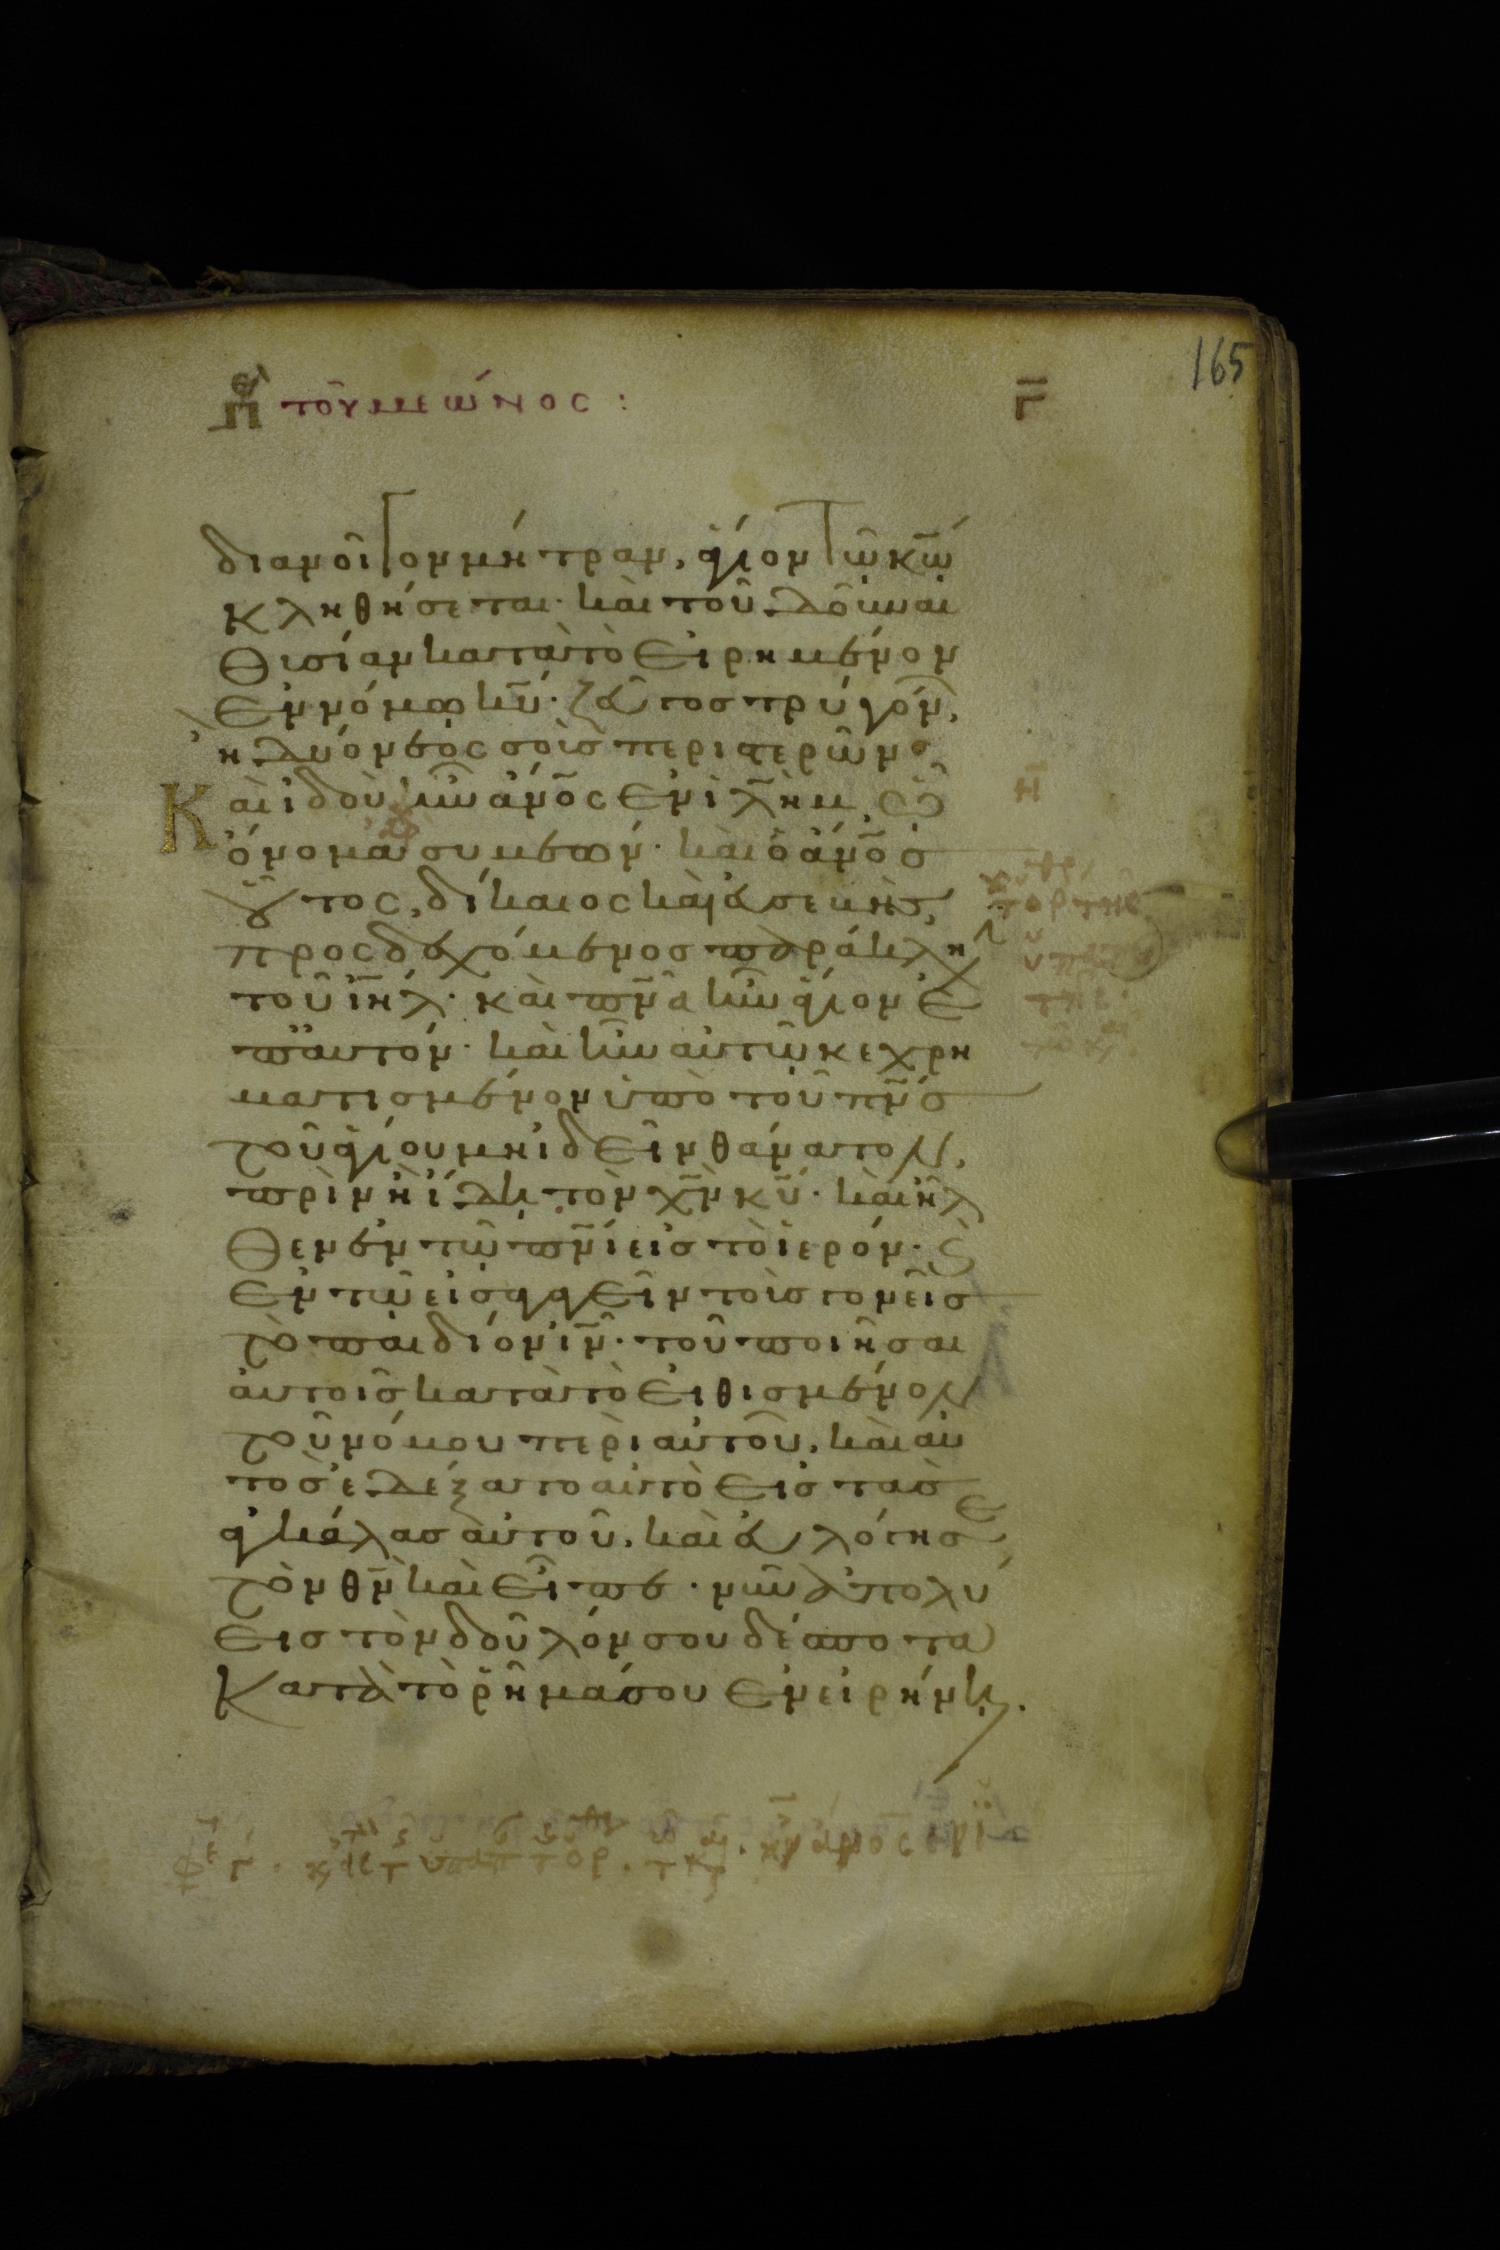 165
Περὶ τοῦ συμεῶνος : Γ̅
διανοῖγον μήτραν, ἅγιον τῶ κ̅ω̅
κληθήσεται· καὶ τοῦ δοῦναι
θυσίαν κατὰ τὸ εἰρημένον
ἐν νόμω κ̅υ̅· ζεῦγος τρυγόνων,
ἢ δύο νεοσσοὺς περιστερῶν·
Καὶ ἰδοὺ ἦν ἄν̅ο̅ς ἐν ἰ̅λ̅ή̅μ̅ ὧ
ὄνομα συμεών· καὶ ὁ ἄν̅ο̅ς
οὗτος, δίκαιος καὶ εὐσεβὴς,
προσδεχόμενος παράκλη
τοῦ ἰ̅η̅λ̅· καὶ π̅ν̅α̅ ἦν ἅγιον ἐ
π αὐτόν· καὶ ἦν αὐτῶ κεχρη
ματισμένον ὑπὸ τοῦ π̅ν̅ς̅
τοῦ ἁγίου μὴ ἰδεῖν θάνατον,
πρὶν ἢ ἴδη τὸν χ̅ν̅ κ̅υ̅· καὶ ἦλ
θεν ἐν τῶ π̅ν̅ι̅ εἰς τὸ ἱερόν· καὶ
ἐν τῶ εἰσαγαγεῖν τοὺς γονεῖς
τὸ παιδίον ἰ̅ν̅· τοῦ ποιῆσαι
αὐτοῖς κατὰ τὸ εἰθισμένον
τοῦ νόμου περὶ αὐτοῦ, καὶ αὐ
τὸς ἐδέξατο αὐτὸ εἰς τὰς
ἀγκάλας αὐτοῦ, καὶ εὐλόγησε
τὸν θ̅ν̅ καὶ εἶπε· νῦν ἀπολύ
εις τὸν δοῦλόν σου δέσποτα
κατὰ τὸ ῥῆμά σου ἐν εἰρήνη·